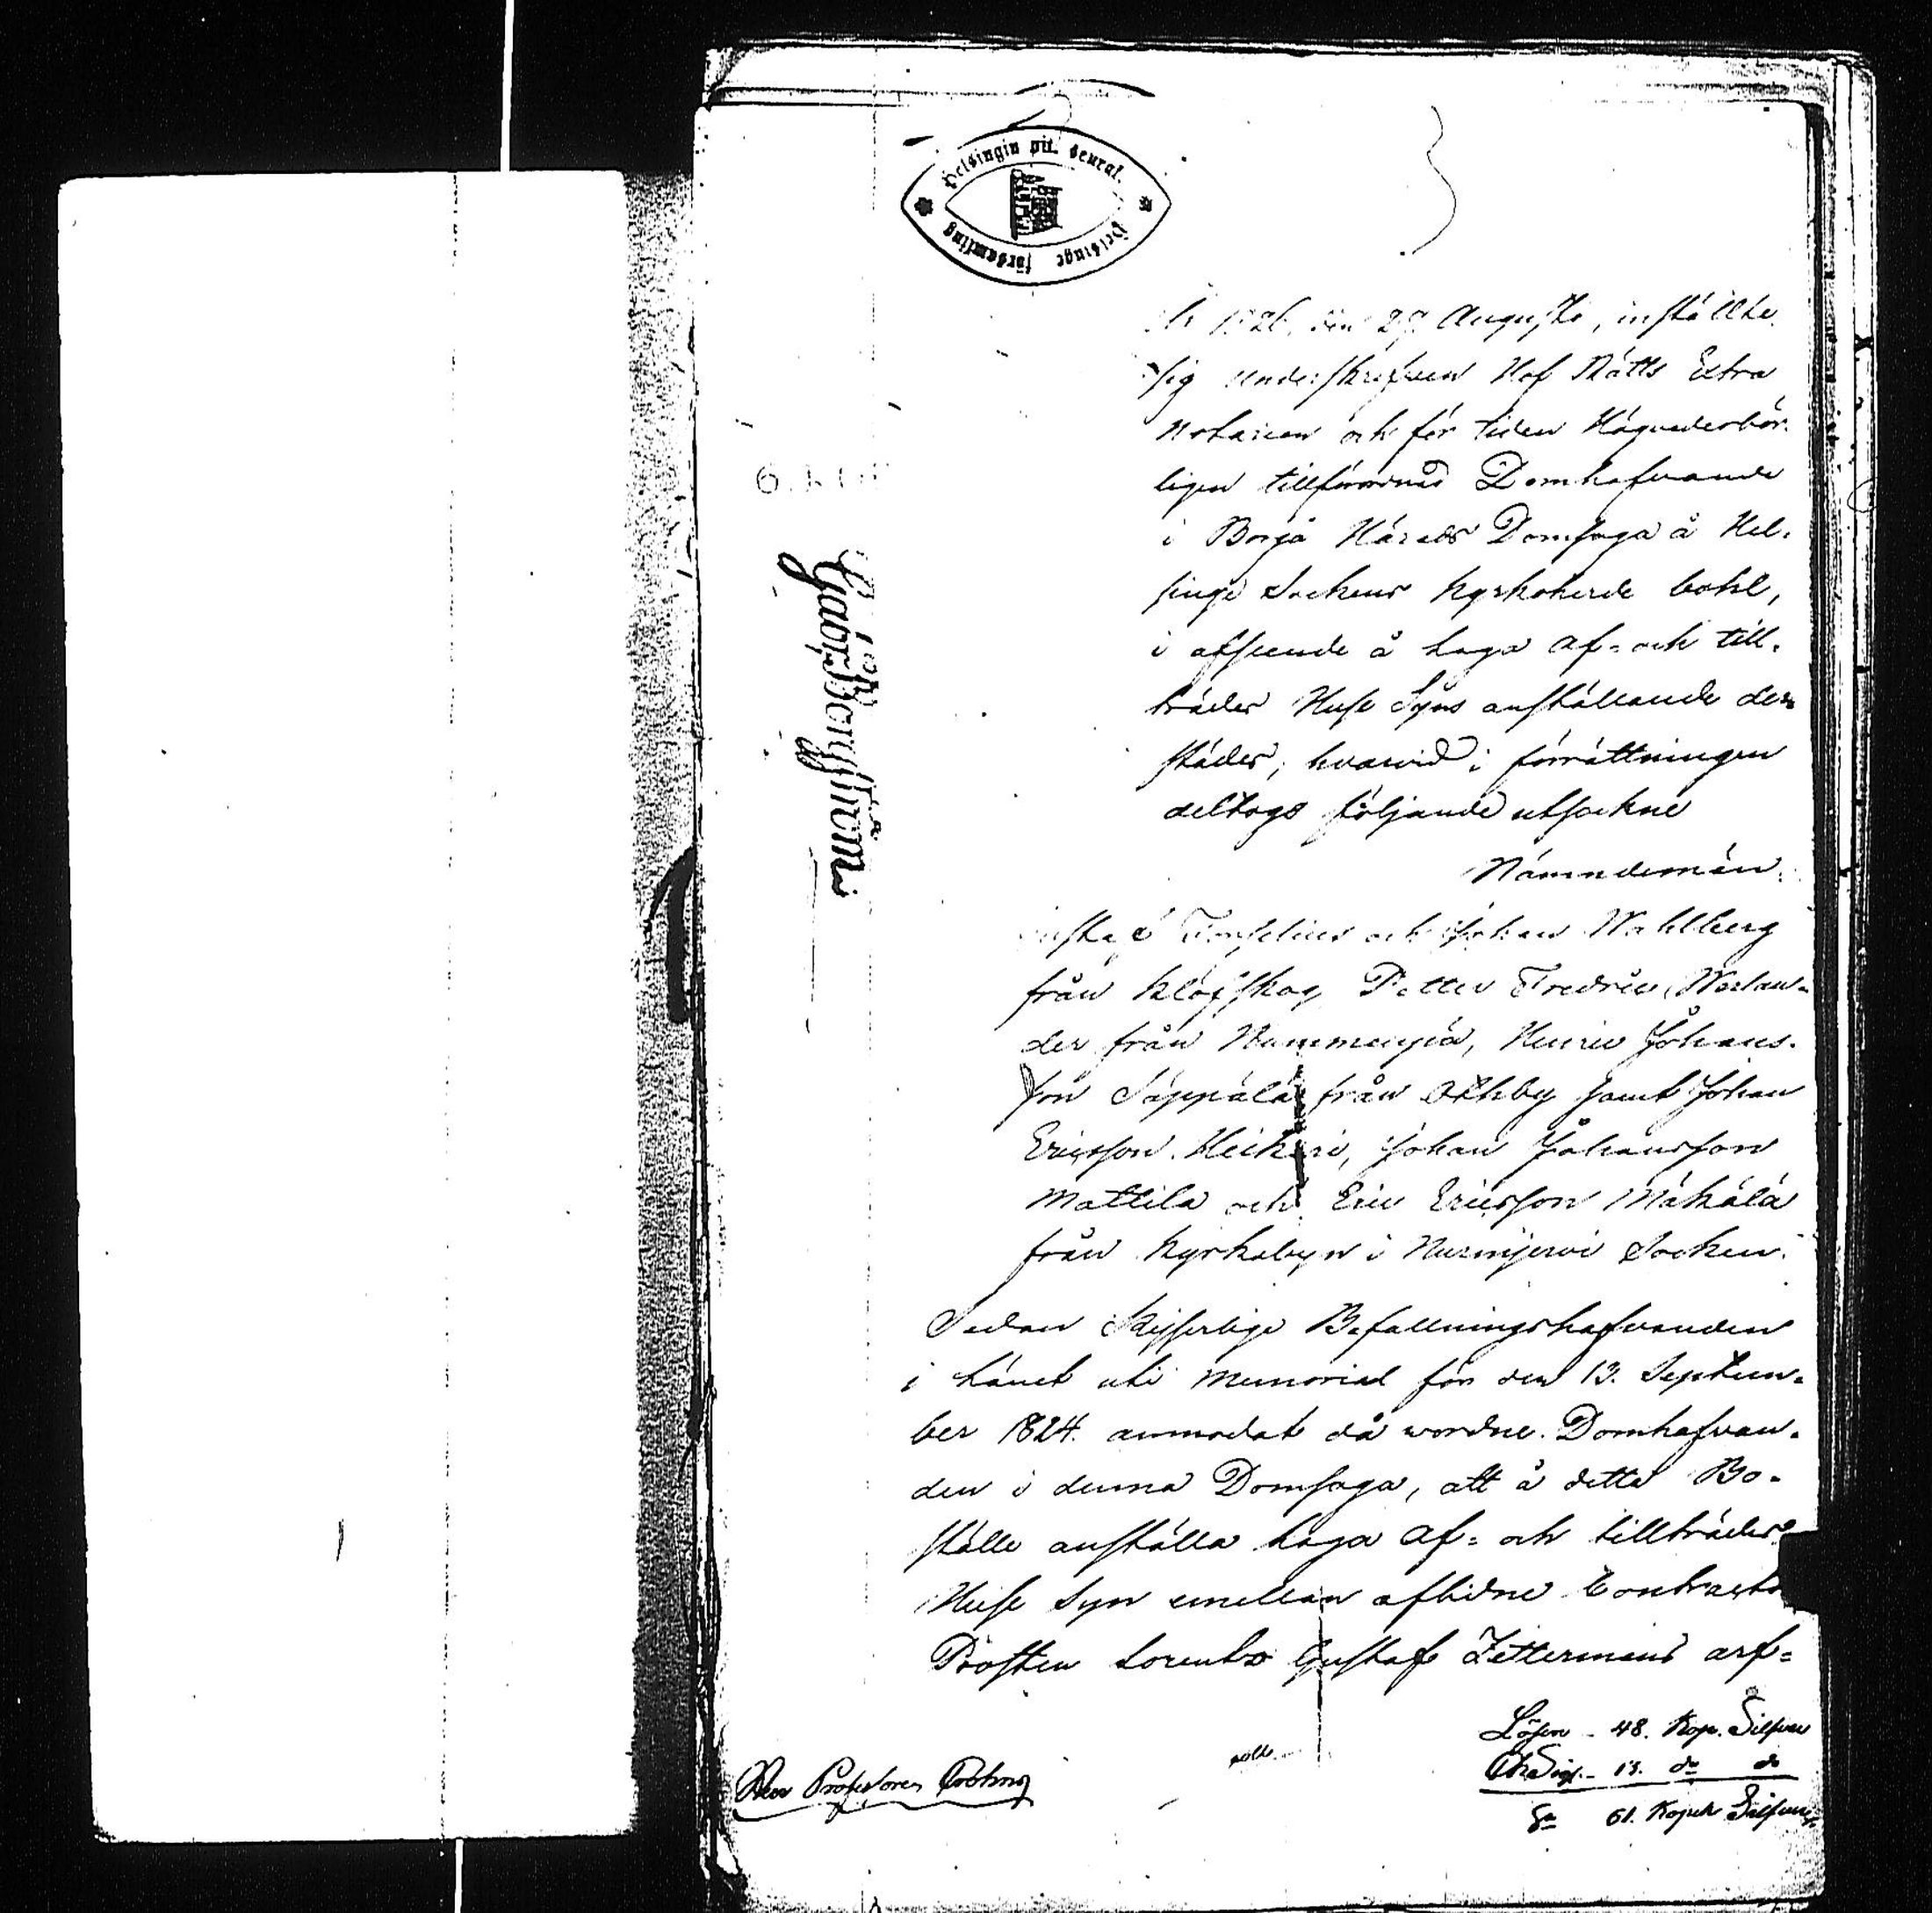 Helsingin pit. seurak.
Helsinge församling
den 29 Augusti, instälte
sig underskrefven Hof Rätts Extra
Notarien och för tiden Högvederbör-
ligen tillförordnad Domhafvande
i Borgå Härads Domsaga å Hel-
singe Sockens Kyrkoherde bohl,
i afseende å laga af- och till-
trädes Huse Syns anställande der-
städes, hvarvid i förrättningen
deltogo följande utsockne
Nämndemän
och Johan Wahlberg
från Klöfskog, Petter Fredric
der från Nummenpä, Henric Johans-
son Säppälä från samt Johan
Ericsson Heikari, Johan Johansson
Mattila och Eric Ericsson Mäkälä
från Kyrkobyn i Nurmijervi Socken.
Sedan Kejserlige Befallningshafvanden
i Länet uti Memorial för den 13. Septem-
ber 1824. anmodat då wordne Domhafvan-
den i denna Domsaga, att å detta Bo-
ställe anställa laga af- och tillträdes
Huse Syn emellan aflidne Contracts
Prosten Lorentz Gustaf Zettermans arf-
Lösen - 48. Kop. Silfver
13. do do
Sa 61. Kopek Silfver
Herr Professoren
Gabr. Bergström